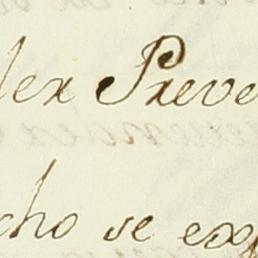 lex Preve
cho se exp